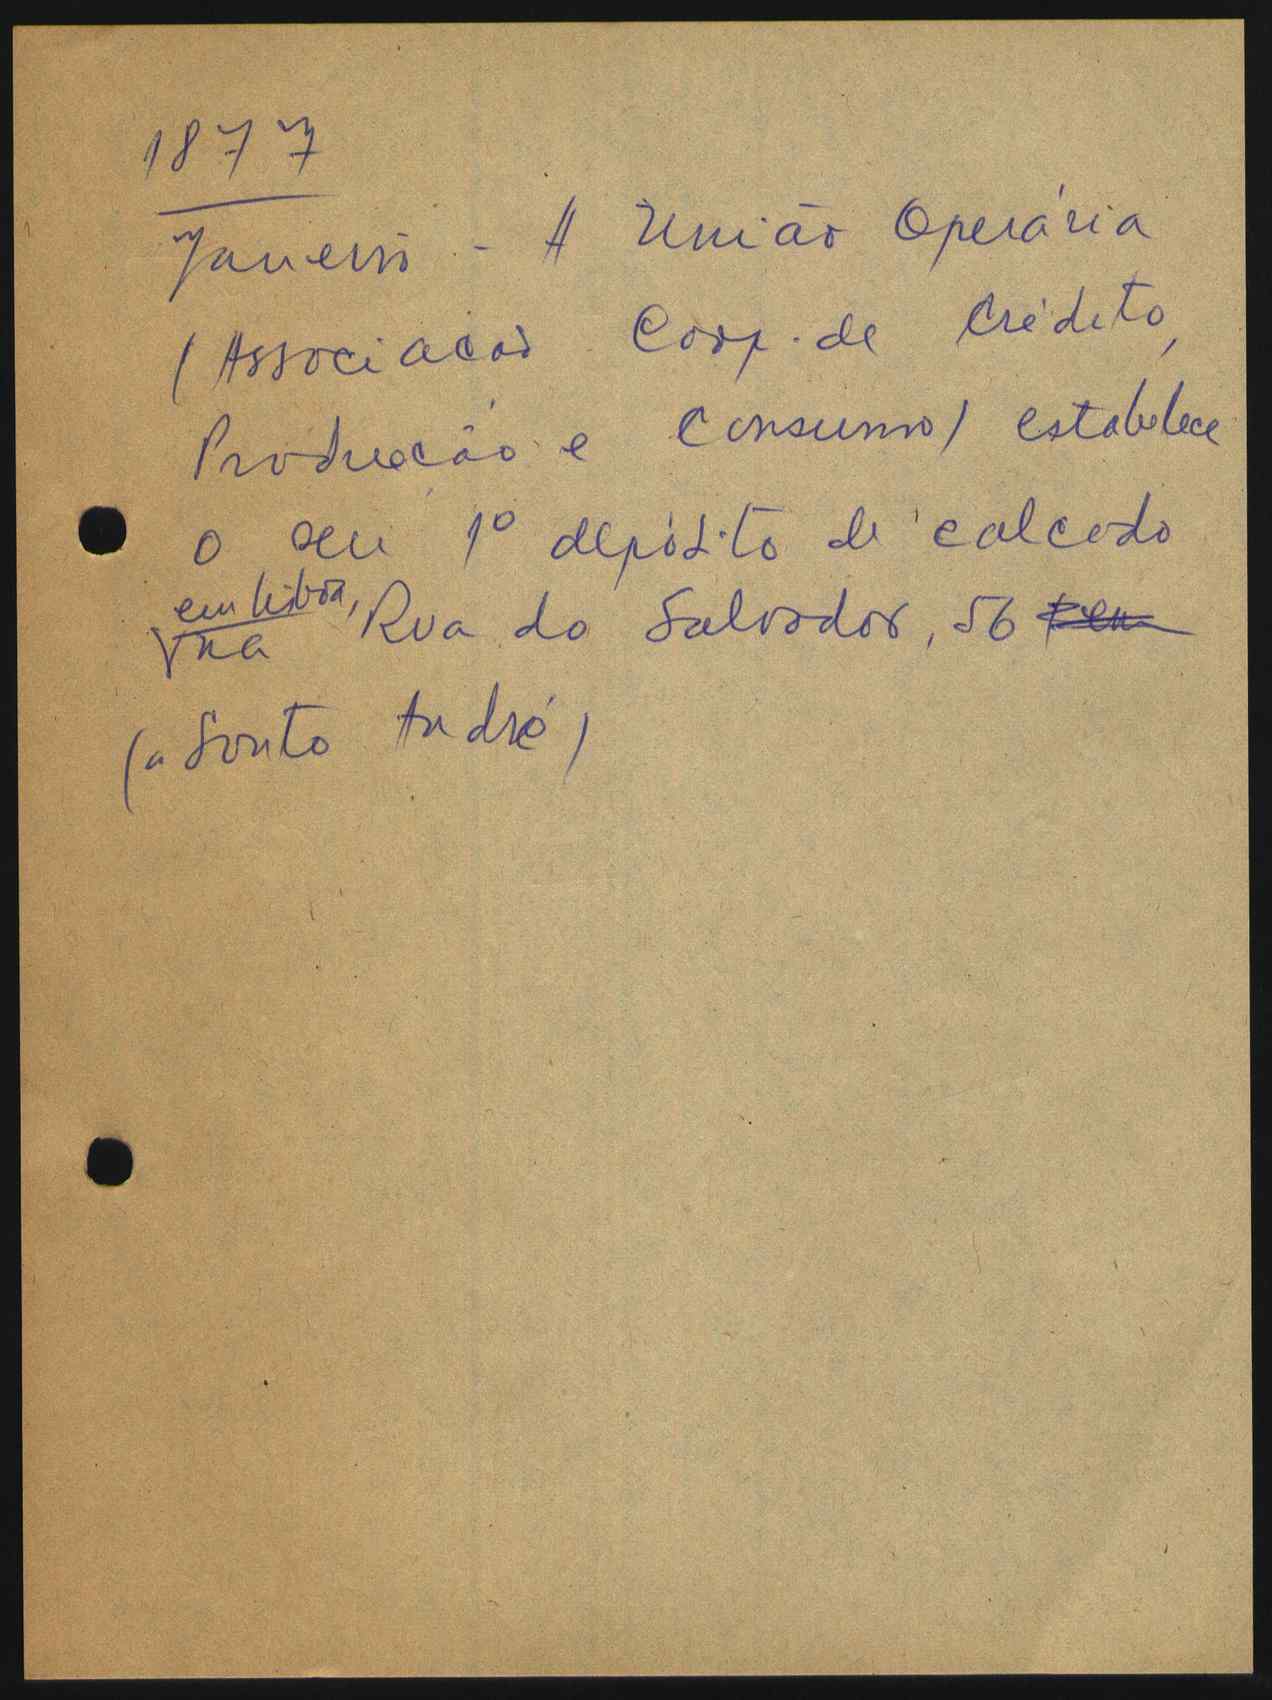 1877
Janeiro - A União Operária
(Associacão Coop. de Crédito,
Producção e Consumo) estabelece
o seu 1º depósito de calcado
em Lisboa,
na Rua do Salvador, 56
(a Santo André)